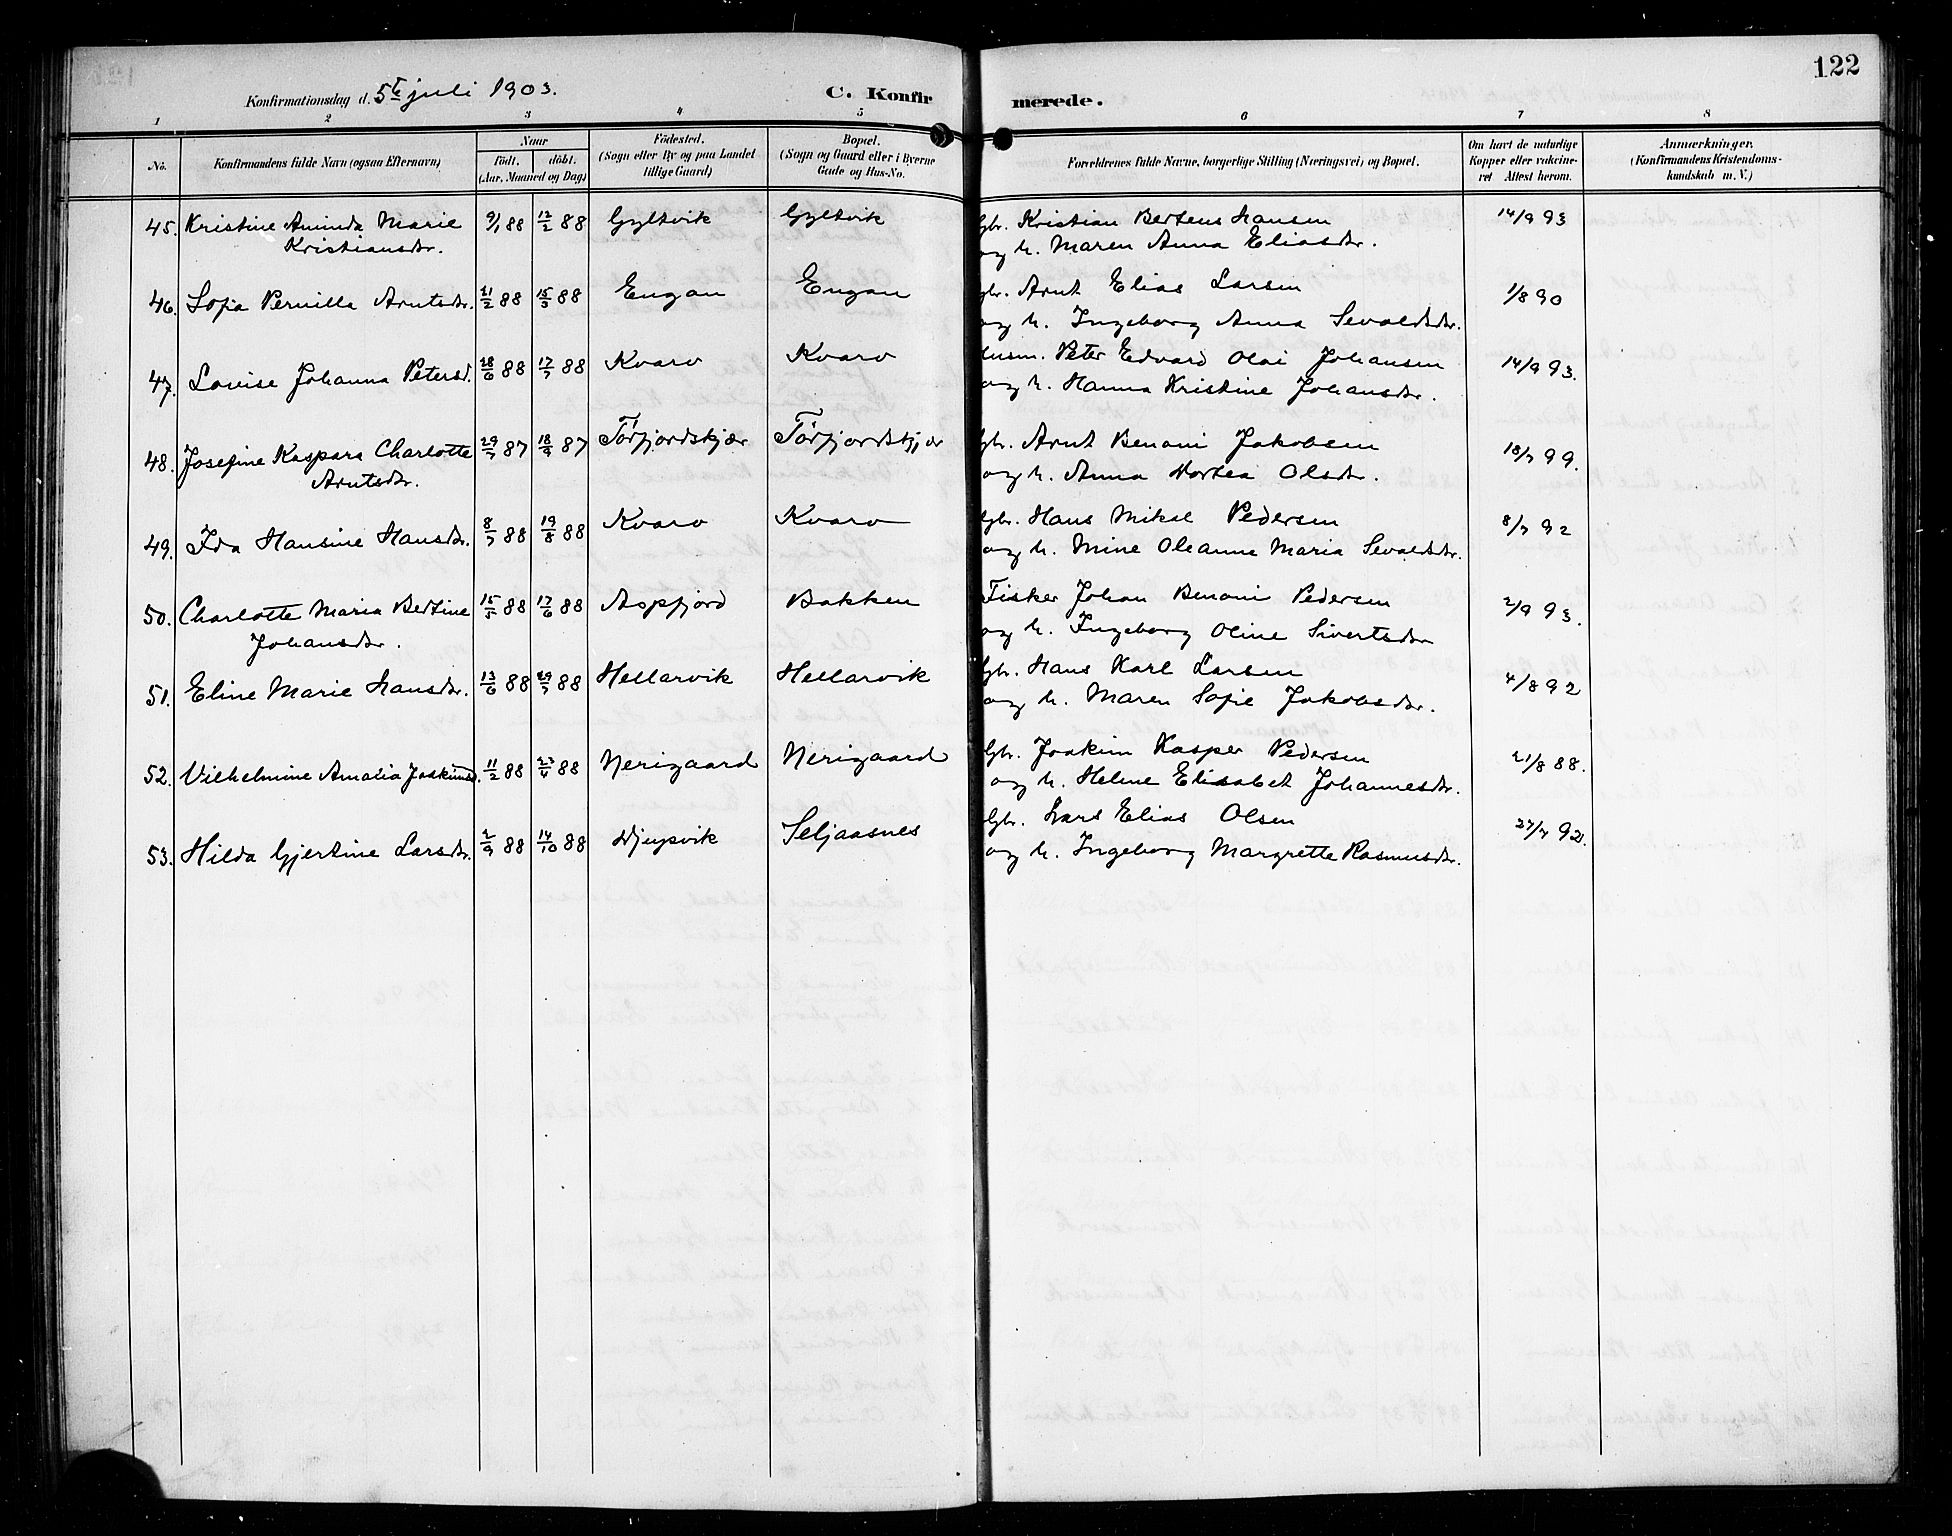 122
Konfirmationsdag d. 5te juli 1903.
C. Konfir merede.
1 2 3 4 5 6 7 8
No.
Konfirmandens fulde Navn (ogsaa Efternavn)
Naar
födt. döbt.
(Aar, Maaned og Dag)
Födested.
(Sogn eller By og paa Landet
tillige Gaard)
Bopæl.
(Sogn og Gaard eller i Byerne
Gade og Hus-No.
Forældrenes fulde Navne, borgerlige Stilling (Næringsvei) og Bopæl.
Om havt de naturlige
Kopper eller vakcine-
ret Attest herom.
Anmærkninger.
(Konfirmandens Kristendoms-
kundskab m. V.)
45. Kristine Aminda Marie 9/1 88 12/2 88 Gyltvik Gyltvik Gbr. Kristian Bertens Hansen 14/9 93
Kristiansdr. og h. Maren Anna Eliasdr.
46. Sofia Pernille Arntsdr. 21/2 88 15/3 88 Engan Engan gbr. Arnt Elias Larsen 1/8 90
og h. Ingeborg Anna Sevaldsdr.
47. Lovise Johanna Petersd. 18/6 88 17/7 88 Kvarv Kvarv Husm. Peter Edvard Olai Johansen 14/9 93.
og h. Hanna Kristine Johansdr.
48. Josefine Kaspara Charlotte 29/7 87 18/9 87 Törfjordskjær Törfjordskjær Gbr. Arnt Benoni Jakobsen 18/7 99.
Arntsdr. og h. Anna Dortea Olsdr.
49. Ida Hansine Hansdr. 8/7 88 19/8 88 Kvarv Kvarv Gbr. Hans Mikal Pedersen 8/7 92
og h. Mine Oleanna Maria Sevaldsdr.
50. Charlotte Maria Bertine 15/5 88 17/6 88 Aspfjord Bakken Fisker Johan Benoni Pedersen 2/9 93.
Johansdr. og h. Ingeborg Oline Sivertsdr
51. Eline Marie Hansdr. 13/6 88 29/7 88 Hellarvik Hellarvik Gbr. Hans Karl Larsen 4/8 92
og h. Maren Sofie Jakobsdr.
52. Vilhelmine Amalia Joakimsd. 11/2 88 23/4 88 Nerigaard Nerigaard Gbr. Joakim Kasper Pedersen 21/8 88.
og h. Helene Elisabet Johannesdr.
53. Hilda Gjertine Larsdr. 2/9 88 14/10 88 Djupvik Seljaasnes Gbr. Lars Elias Olsen 27/7 92.
og h. Ingeborg Margrette Rasmusdr.